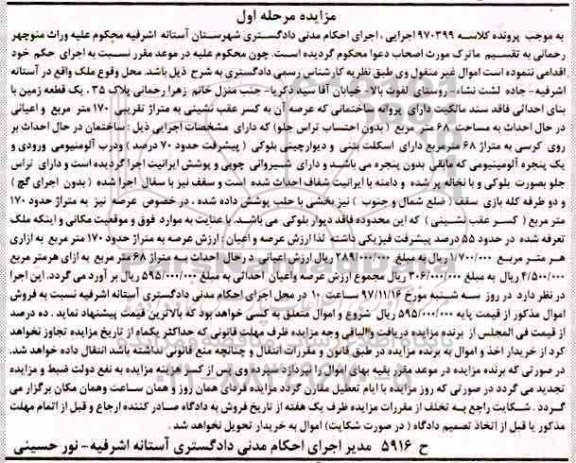 مزایده مرحله اول
به موجب پرونده کلاسه ۹۷۰۳۹۹ اجرایی ، اجرای احکام مدنی دادگستری شهرستان آستانه اشرفیه محکوم علیه وراث منوچهر
رحمانی به تقسیم ماترک مورث اصحاب دعوا محکوم گردیده است. چون محکوم علیه در موعد مقرر نسبت به اجرای حکم خود
اقدامی ننموده است اموال غیر منقول وی طبق نظریه کارشناس رسمی دادگستری به شرح ذیل باشد. محل وقوع ملک واقع در آستانه
اشرفیه- جاده لشت نشاء- روستای لفوت بالا- خیابان آقا سید ذکریا- جنب منزل خانم زهرا رحمانی پلاک ۳۵ . یک قطعه زمین با
بنای احداثی فاقد سند مالکیت دارای پروانه ساختمانی که عرصه آن به کسر عقب نشینی به متراژ تقریبی ۱۷۰ متر مربع و اعیانی
در حال احداث به مساحت ۶۸ متر مربع (بدون احتساب تراس جلو) که دارای مشخصات اجرایی ذیل : ساختمان در حال احداث بر
روی کرسی به متراژ ۶۸ مترمربع دارای اسکلت بتنی و دیوارچینی بلوکی ( پیشرفت حدود ۷۰ درصد ) ودرب آلومنیومی ورودی و
یک پنجره آلومینیومی که مابقی بدون پنجره می باشد و دارای شیروانی چوبی و پوشش ایرانیت اجرا گردیده است و دارای تراس
جلو بصورت بلوکی و با نخاله پر شده و دامنه با ایرانیت شفاف احداث شده است و سقف نیز با سفال اجرا شده ( بدون اجرای گچ )
و دو طرفه کله بازی سقف ( ضلع شمال و جنوب ) نیز بخشی با حلب پوشش داده شده ، در خصوص عرصه نیز به متراژ حدود ۱۷۰
متر مربع ( کسر عقب نشینی ) که این محدوده فاقد دیوار بلوکی می باشد. با عنایت به موارد فوق و موقعیت مکانی و اینکه ملک
تعرفه شده در حدود ۵۵ درصد پیشرفت فیزیکی داشته لذا ارزش عرصه و اعیان : ارزش عرصه به متراژ حدود ۱۷۰ متر مربع به ازاری
هر متر مربع ۱/۷۰۰/۰۰۰ ریال به مبلغ ۲۸۹/۰۰۰/۰۰۰ ریال ارزش اعیانی در حال احداث به متراژ ۶۸ متر مربع به ازای هرمتر مربع
۴/۵۰۰/۰۰۰ ریال به مبلغ ۳۰۶/۰۰۰/۰۰۰ ریال مجموع ارزش عرصه واعیان احداثی به مبلغ ۵۹۵/۰۰۰/۰۰۰ ریال بر آورد می گردد. این اجرا
در نظر دارد در روز سه شنبه مورخ ۹۷/۱۱/۱۶ ساعت ۱۰ در محل اجرای احکام مدنی دادگستری آستانه اشرفیه نسبت به فروش
اموال مذکور از قیمت پایه ۵۹۵/۰۰۰/۰۰۰ ریال شروع و اموال متعلق به کسی خواهد بود که بالاترین قیمت پیشنهاد نماید . ده درصد
از قیمت فی المجلس از برنده مزایده دریافت والباقی وجه مزایده ظرف مهلت قانونی که حداکثر یکماه از تاریخ مزایده تجاوز نخواهد
کرد از خریدار اخذ و اموال به برنده مزایده در طبق قانون و مقررات انتقال و چنانچه منع قانونی نداشته باشد انتقال داده خواهد شد.
در صورتی که برنده مزایده در موعد مقرر بقیه بهای اموال را نپردازد سپرده وی پس از کسر هزینه مزایده به نفع دولت ضبط و مزایده
تجدید می گردد در صورتی که روز مزایده با ایام تعطیل مقارن گردد مزایده فردای همان روز و همان ساعت وهمان مکان برگزار می
گردد . شکایت راجع به تخلف از مقررات مزایده ظرف یک هفته از تاریخ فروش به دادگاه صادر کننده ارجاع و قبل از اتمام مهلت
مذکور یا قبل از اتخاذ تصمیم دادگاه ( در صورت شکایت) اموال به خریدار تحویل نخواهد شد .
ح ۵۹۱۶ مدیر اجرای احکام مدنی دادگستری آستانه اشرفیه- نور حسینی